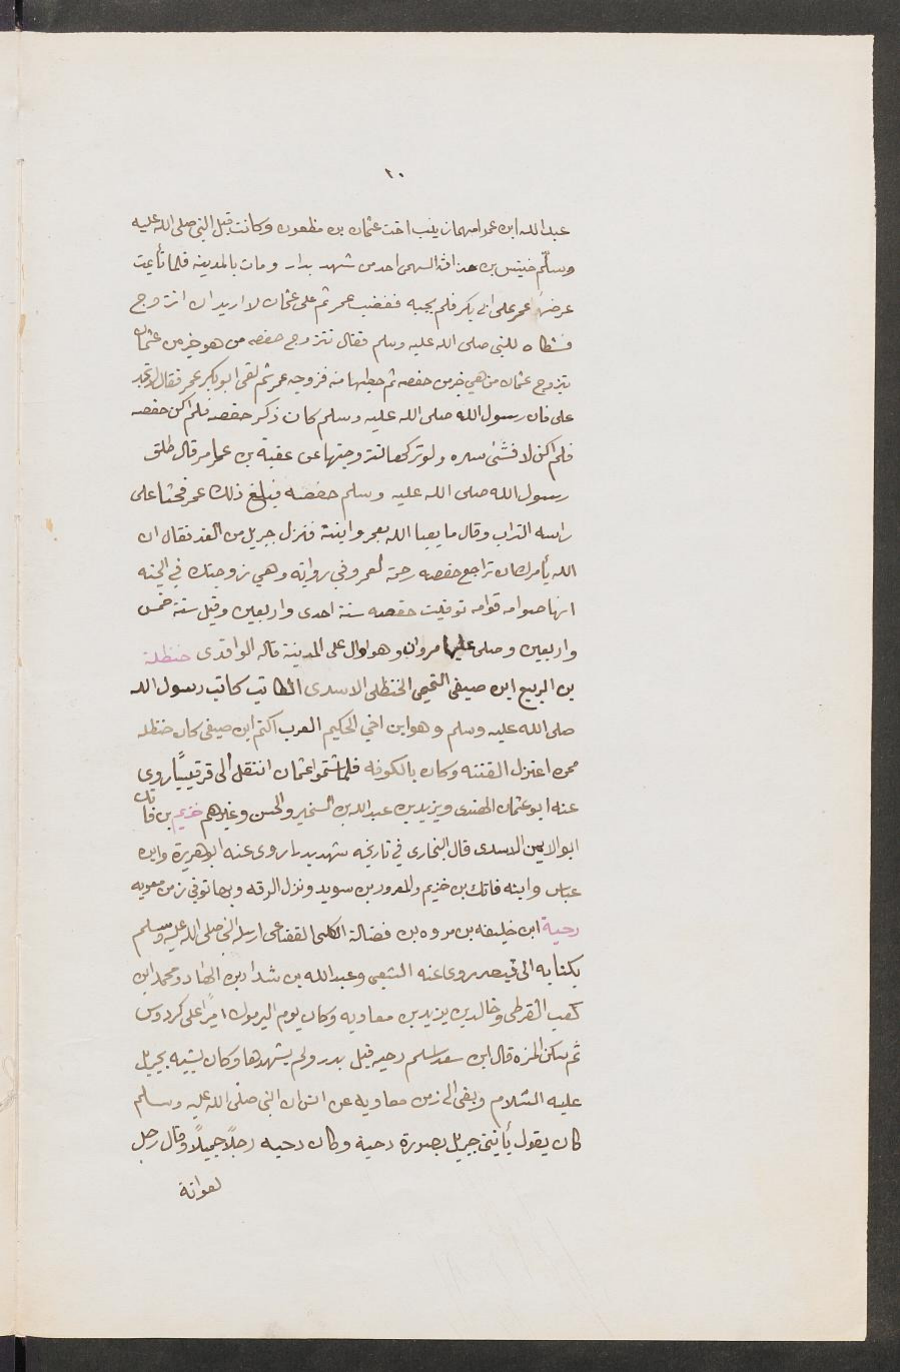 ٢٠
عبدالله ابن عمر امهما زينب اخت عثمان بن مظعون وكانت قبل النبي صلى الله عليه
وسلّم خنيس بن حذافة السهمي احد من شهد بدار ومات بالمدينه فلما تأيمت
عرضها عمر على ابي بكر فلم يجبه فغضب عمر ثم على عثمان لا اريد ان اتزوج
فشكاه للنبي صلى الله عليه وسلم فقال تتزوج حفصه من هو خير من عثمان
يتزوج عثمان من هي خير من حفصه ثم خطبها منه فزوجه عمر ثم لقى ابو بكر عمر فقال لا تجد
على فان رسول الله صلى الله عليه وسلم كان ذكر حفصه فلم اكن حفصه
فلم اكن لافشئ سره ولو تركها لتزوجتها عن عقبة بن عامر قال طلق
رسول الله صلى الله عليه وسلم حفصه فبلغ ذلك عمر فحثا على
راسه التراب وقال ما يعبا الله بعمر وابنته فنزل جبريل من الغد فقال ان
الله يأمرك ان تراجع حفصه رحمة لعمر وفي روايه وهي زوجتك في الجنه
انها صوامه قوامه توفيت حفصه سنة احدى واربعين وقيل سنة خمس
واربعين وصلى عليها مروان وهو وال على المدينة قاله الواقدى حنظلة
بن الربيع ابن صيفى التميمي الحنظلى الاسدى الكاتب كاتب رسول الله
صلى الله عليه وسلم وهو ابن اخي الحكيم العرب اكتم ابن صيفى كان حنظله
ممن اعتزل الفتنه وكان بالكوفه فلما شتموا عثمان انتقل الى قرقيسيًا روى
عنه ابو عثمان الهندى ويزيد بن عبدالله بن الشخير والحسن وغيرهم خريم بن فاتك
ابو الايمن الاسدى قال البخارى في تاريخه شهد بدرا روى عنه ابو هريرة وابن
عباس وابنه فاتك بن خزيم والمعرور بن سويد ونزل الرقه وبها توفي زمن معويه
دحية ابن خليفه بن فروه بن فضالة الكلبى القضاعى ارسله النبي صلى الله عليه وسلم
بكتابه الى قيصر روى عنه الشعبى وعبدالله بن شداد بن الهاد ومحمد ابن
كعب القرظى وخالد بن يزيد بن معاويه وكان يوم اليرموك اميرًا على كردوس
ثم سكن المزه قال ابن سعد اسلم دحيه قبل بدر ولم يشهدها وكان يشبه بجبريل
عليه السّلام وبقى الى زمن معاويه عن انس ان النبي صلى الله عليه وسلم
كان يقول يأتيني جبريل بصورة دحية وكان دحيه رجلًا جميلًا وقال رجل
لعوانة